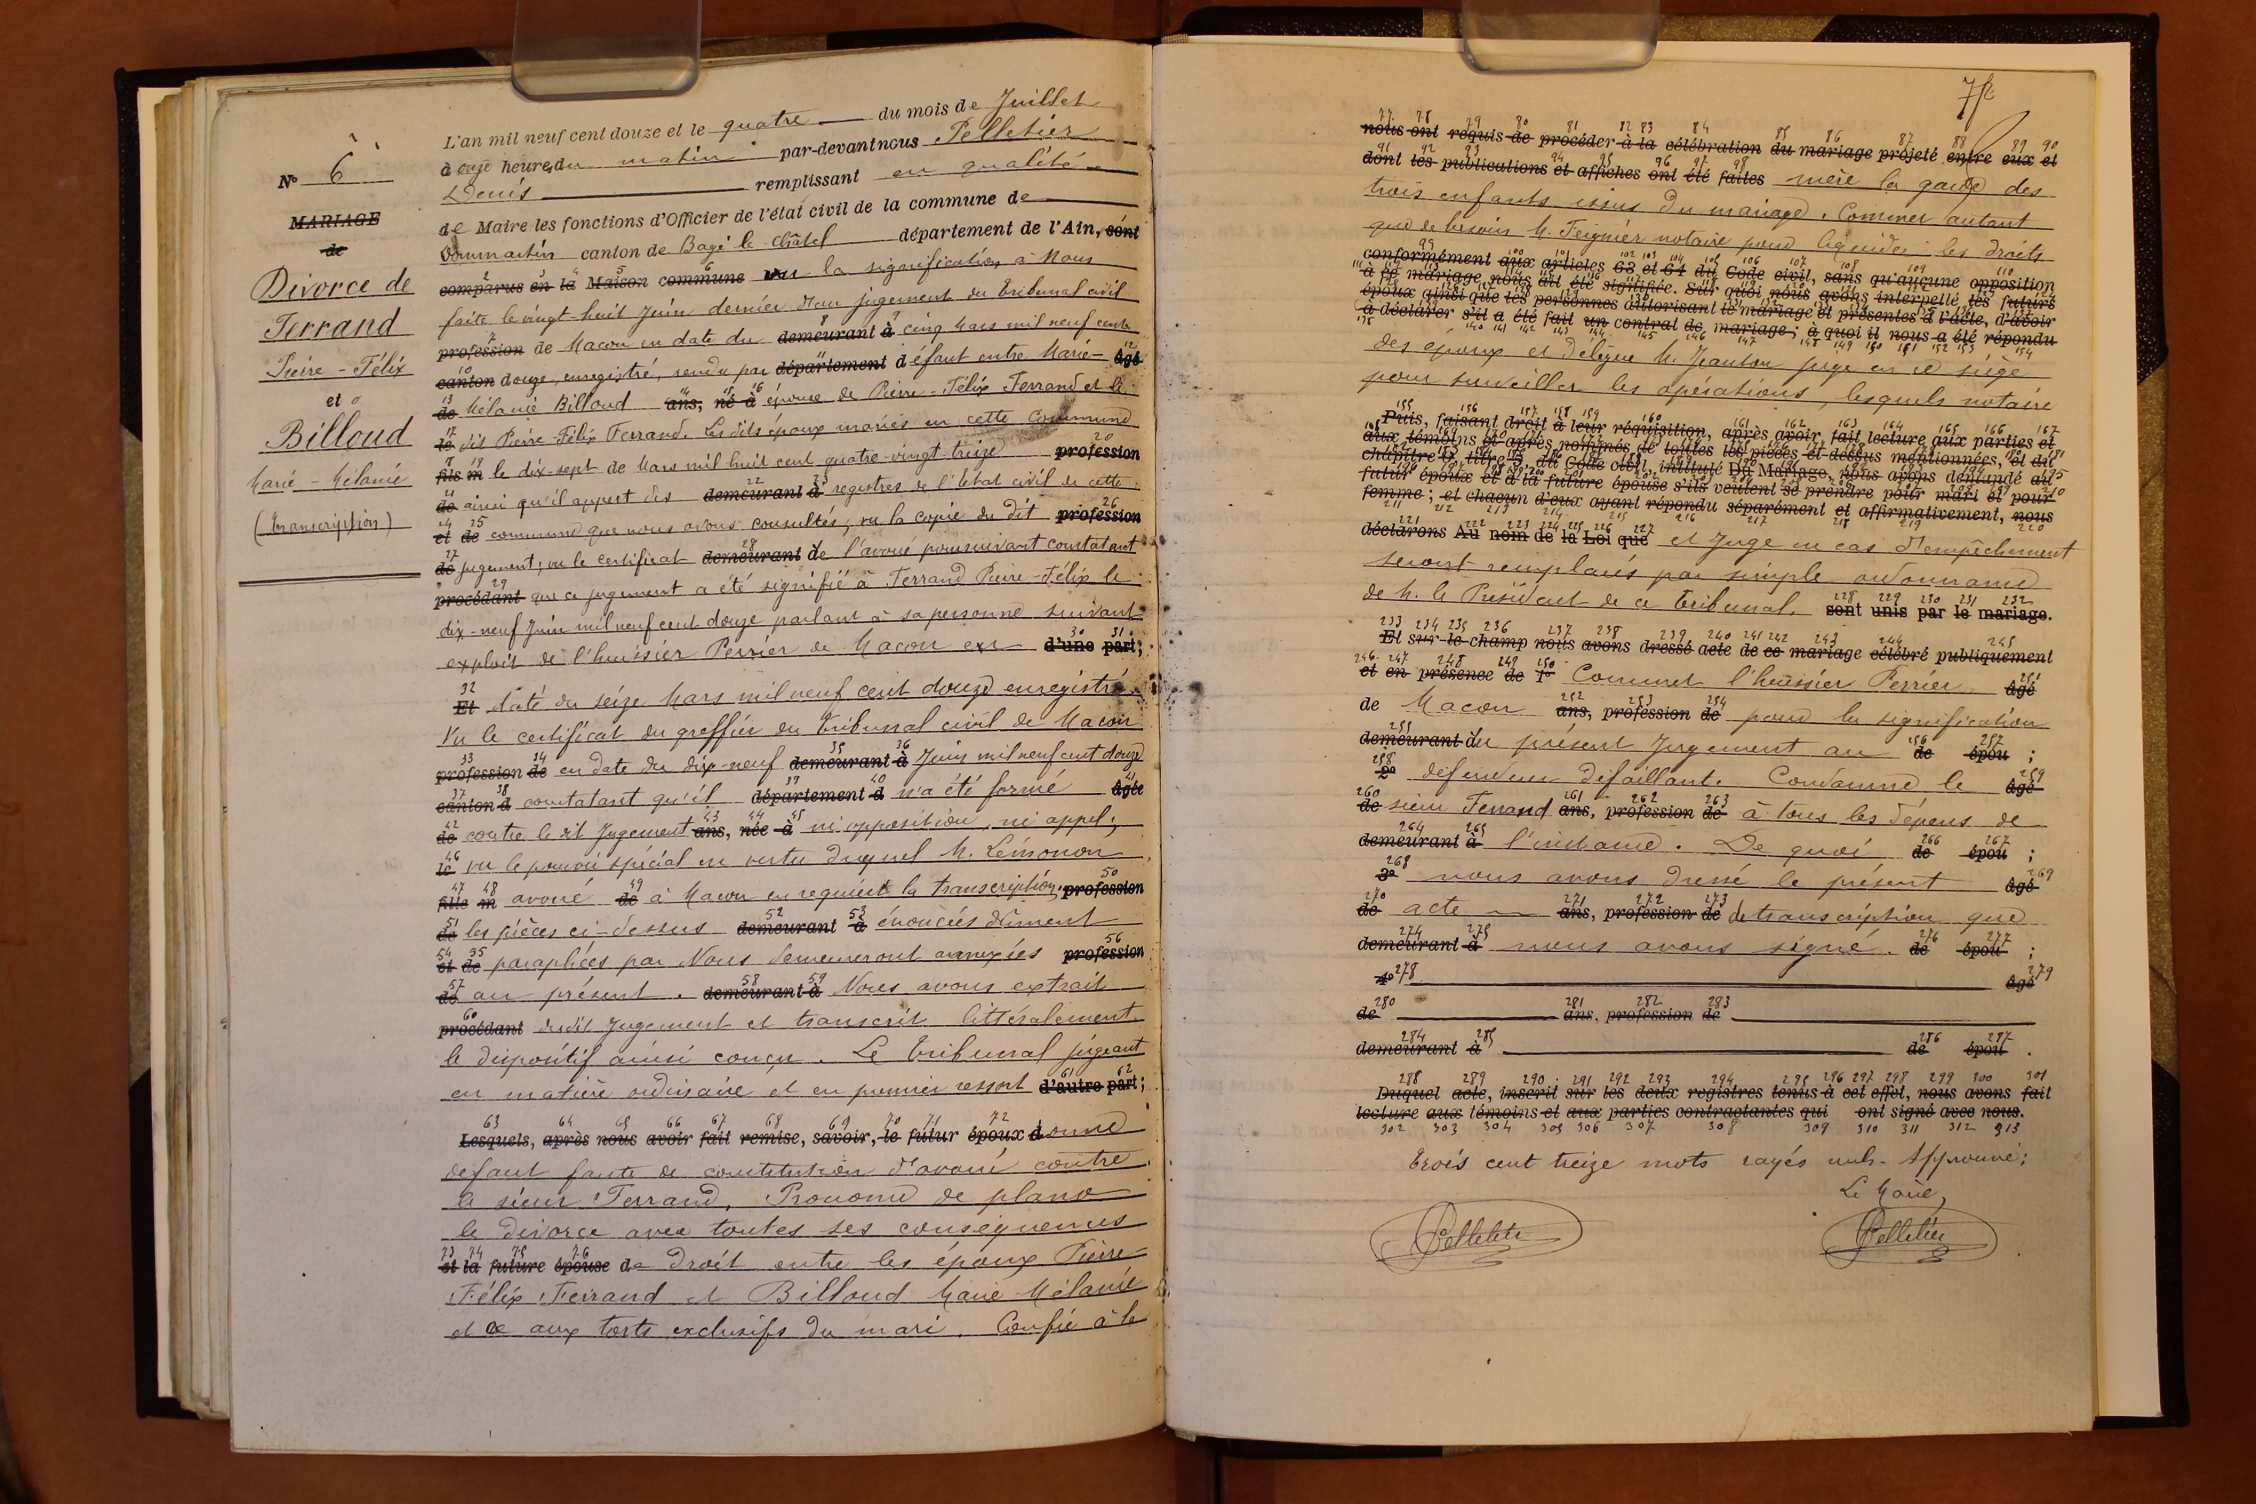 L'an mil neuf cent douze et le quatre du mois de Juillet
à onze heures du matin par-devant nous Pelletier
Denis remplissant en qualité
de Maire les fonctions d'Officier de l'état civil de la commune de
Dommartin canton de Bagé le Châtel département de l'Ain, sont
comparus en la Maison commune vu la signification à Nous
faite le vingt-huit Juin dernier d'un jugement du tribunal civil
profession de Macon en date du demeurant à cinq Mars mil neuf cent
canton douze, enregistré, rendu par département défaut entre Marie- âgé
de Mélanie Billoud ans, né à épouse de Pierre-Félix Ferrand et le
le dit Pierre-Félix Ferrand. Les dits époux mariés en cette commune
fils m le dix-sept de Mars mil huit cent quatre-vingt-treize profession
de ainsi qu'il appert des demeurant à registres de l'Etat civil de cette
et de commune que nous avons consultés; vu la copie du dit profession
de jugement; vu le certificat demeurant de l'avoué poursuivant constatant
procédant que ce jugement a été signifié à Ferrand Pierre-Félix le
dix-neuf Juin mil neuf cent douze parlant à sa personne suivant
exploit de l'huissier Perrier de Macon en d'une part;
Et daté du seize Mars mil neuf cent douze enregistré.
Vu le certificat du greffier du tribunal civil de Macon
profession de en date du dix-neuf demeurant à Juin mil neuf cent douze
canton d constatant qu'il département d n'a été formé âgée
de contre le dit Jugement ans, née à ni opposition, ni appel;
le vu le pouvoir spécial en vertu duquel M. Lémonon
fille m avoué de à Macon en requiert la transcription. profession
de les pièces ci-dessus demeurant à énoncées dûment
et de paraphées par Nous demeureront annexées profession
de au présent. demeurant à Nous avons extrait
procédant dudit Jugement et transcrit littéralement
le dispositif ainsi conçu. Le tribunal jugeant
en matière ordinaire et en premier ressort d'autre part;
Lesquels, après nous avoir fait remise, savoir, le futur époux donne
défaut faute de constitution d'avoué contre
le sieur Ferrand. Prononce de plano
le divorce avec toutes ses conséquences
et la future épouse de droit entre les époux Pierre-
Félix Ferrand et Billoud Marie Mélanie
et ce aux torts exclusifs du mari. Confie à la
N° 6
MARIAGE
de
Divorce de
Ferrand
Pierre-Félix
et
Billoud
Marie-Mélanie
(transcription)
7
nous ont requis de procéder à la célébration du mariage projeté entre eux et
dont les publications et affiches ont été faites mère la garde des
trois enfants issus du mariage. Commet autant
que de besoin M. Feignier notaire pour liquider les droits
conformément aux articles 63 et 64 du Code civil, sans qu'aucune opposition
à ce mariage nous ait été signifiée. Sur quoi nous avons interpellé les futurs
époux ainsi que les personnes autorisant le mariage et présentes à l'acte, d'avoir
à déclarer s'il a été fait un contrat de mariage; à quoi il nous a été répondu
des époux et délègue M. Jeanton juge en ce siège
pour surveiller les opérations, lesquels notaire
Puis, faisant droit à leur réquisition, après avoir fait lecture aux parties et
aux témoins ci-après nommés de toutes les pièces ci-dessus mentionnées, et du
chapitre 6, titre 5 du Code civil, intitulé Du Mariage, nous avons demandé au
futur époux et à la future épouse s'ils veulent se prendre pour mari et pour
femme; et chacun d'eux ayant répondu séparément et affirmativement, nous
déclarons Au nom de la Loi que et Juge en cas d'empêchement
seront remplacés par simple ordonnance
de M. le Président de ce tribunal. sont unis par le mariage.
Et sur-le-champ nous avons dressé acte de ce mariage célébré publiquement
et en présence de 1° Commet l'huissier Perrier âgé
de Macon ans, profession de pour la signification
demeurant du présent Jugement au de épou ;
2° défendeur défaillant. Condamne le âgé
de sieur Ferrand ans, profession de à tous les dépens de
demeurant à l'instance. De quoi de épou ;
3° nous avons dressé le présent âgé
de acte ans, profession de de transcription que
demeurant à nous avons signé. de épou ;
4° âgé
de ans, profession de
demeurant à de épou .
Duquel acte, inscrit sur les deux registres tenus à cet effet, nous avons fait
lecture aux témoins et aux parties contractantes qui ont signé avec nous.
Trois cent treize mots rayés nuls. Approuvé;
Le Maire,
Pelletier Pelletier